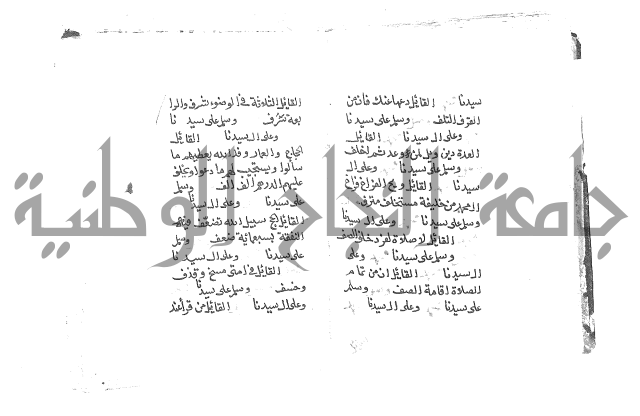 سيدنا القائل دعها عنك فان من
القرف التلف وسلم على سيدنا
وعلى ال سيدنا القائل
العدة دين ويل لمن وعد ثم اخلف
وسلم على سيدنا وعلى ال
سيدنا القائل
وسلم على سيدنا وعلى ال سيدنا
القائل لا صلاة لفرد خلف الصف
وسلم على سيدنا وعلى
ال سيدنا القائل ان من تمام
الصلاة اقامة الصف وسلم
على سيدنا وعلى ال سيدنا
القائل الثلاثة في الوضوء شرف والرا
بعة سرف وسلم على سيدنا
وعلى ال سيدنا القائل
الحجاج والعمار وفد الله يعطيهم ما
سالوا ويستجيب لهم ما دعوا ويخلف
عليهم الدرهم الف الف وسلم
على سيدنا وعلى ال سيدنا
القائل الحج سبيل الله تضعف فيه
النفقة بسبعمائة ضعف وسلم
على سيدنا وعلى ال سيدنا
القائل في امتي مسخ وقذف
وخسف وسلم على سيدنا
وعلى ال سيدنا القائل من قرا عند
جامعة النجاح الوطنية